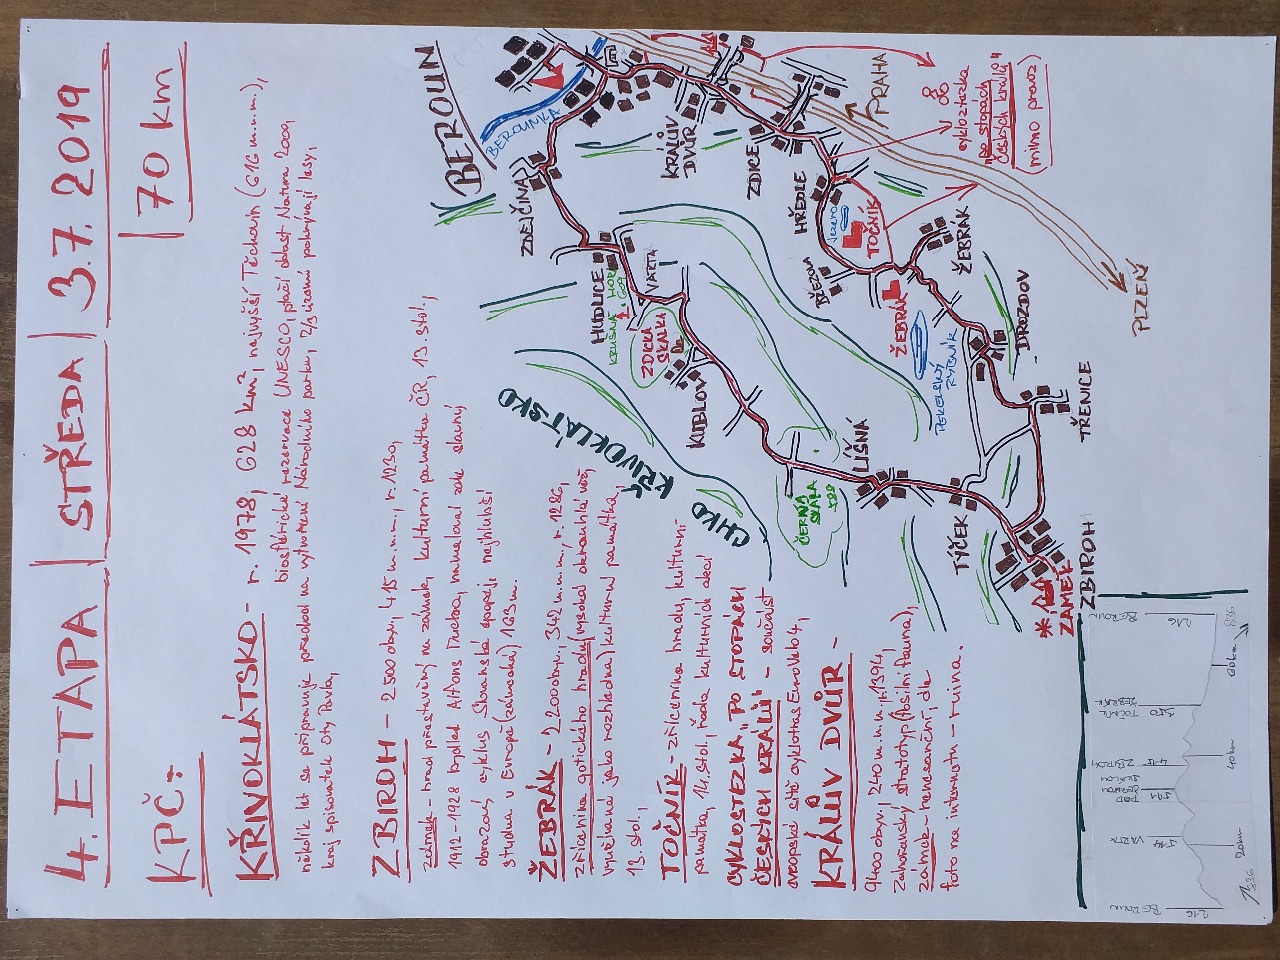 4. ETAPA | STŘEDA | 3.7.2019
70 km
KPČ:
KŘINOKLÁTSKO - r. 1978, 628 km², nejvyšší Těchovín (616 m.n.m.),
biosférická rezervace UNESCO, ptačí oblast Natura 2000,
několik let se připravuje přechod na vytvoření Národního parku, 2/3 území pokrývají lesy,
kraj spisovatele Oty Pavla,
ZBIROH - 2500 obyv., 415 m.n.m., r. 1230,
zámek - hrad přestavěný na zámek, kulturní památka ČR, 13. stol.,
1912-1928 bydlel Alfons Mucha, namaloval zde slavný
obrazový cyklus Slovanská epopej, nejhlubší
studna v Evropě (zámecká) 163 m.
ŽEBRÁK - 2200 obyv., 342 m.n.m., r. 1280,
zřícenina gotického hradu (vysoká okrouhlá věž,
využívaná jako rozhledna) kulturní památka,
13. stol.,
TOČNÍK - zřícenina hradu, kulturní
památka, 14. stol., řada kulturních akcí
CYKLOSTEZKA "PO STOPÁCH
ČESKÝCH KRÁLŮ" - součást
evropské sítě cyklotras EuroVelo 4,
KRÁLŮV DVŮR -
9400 obyv., 240 m.n.m., r. 1394,
Zahořanský stratotyp (fosilní fauna),
zámek - renesanční, dle
foto na internetu - ruina.
BEROUN
BEROUNKA
ZDEJČINA
KRÁLŮV
DVŮR
ZDICE
PRAHA
cyklostezka
"po stopách
českých králů"
(mimo provoz)
HUDLICE
KRUŠNÁ HORA
609
VARTA
ZDICKÁ
SKALKA
HŘEDLE
Jezero
TOČNÍK
BŘEZOVÁ
ŽEBRÁK
ŽEBRÁK
PEKELSKÝ
RYBNÍK
DROZDOV
PLZEŇ
KUBLOV
CHKO KŘIVOKLÁTSKO
LÍŠNÁ
ČERNÁ
SKÁLA
TÝČEK
TŘENICE
ZBIROH
ZÁMEK
BEROUN
216
VARTA
514
POD
ČERNOU
SKALOU
ZBIROH
415
TOČNÍK
ŽEBRÁK
BEROUN
216
20km
40km
60km
836
836